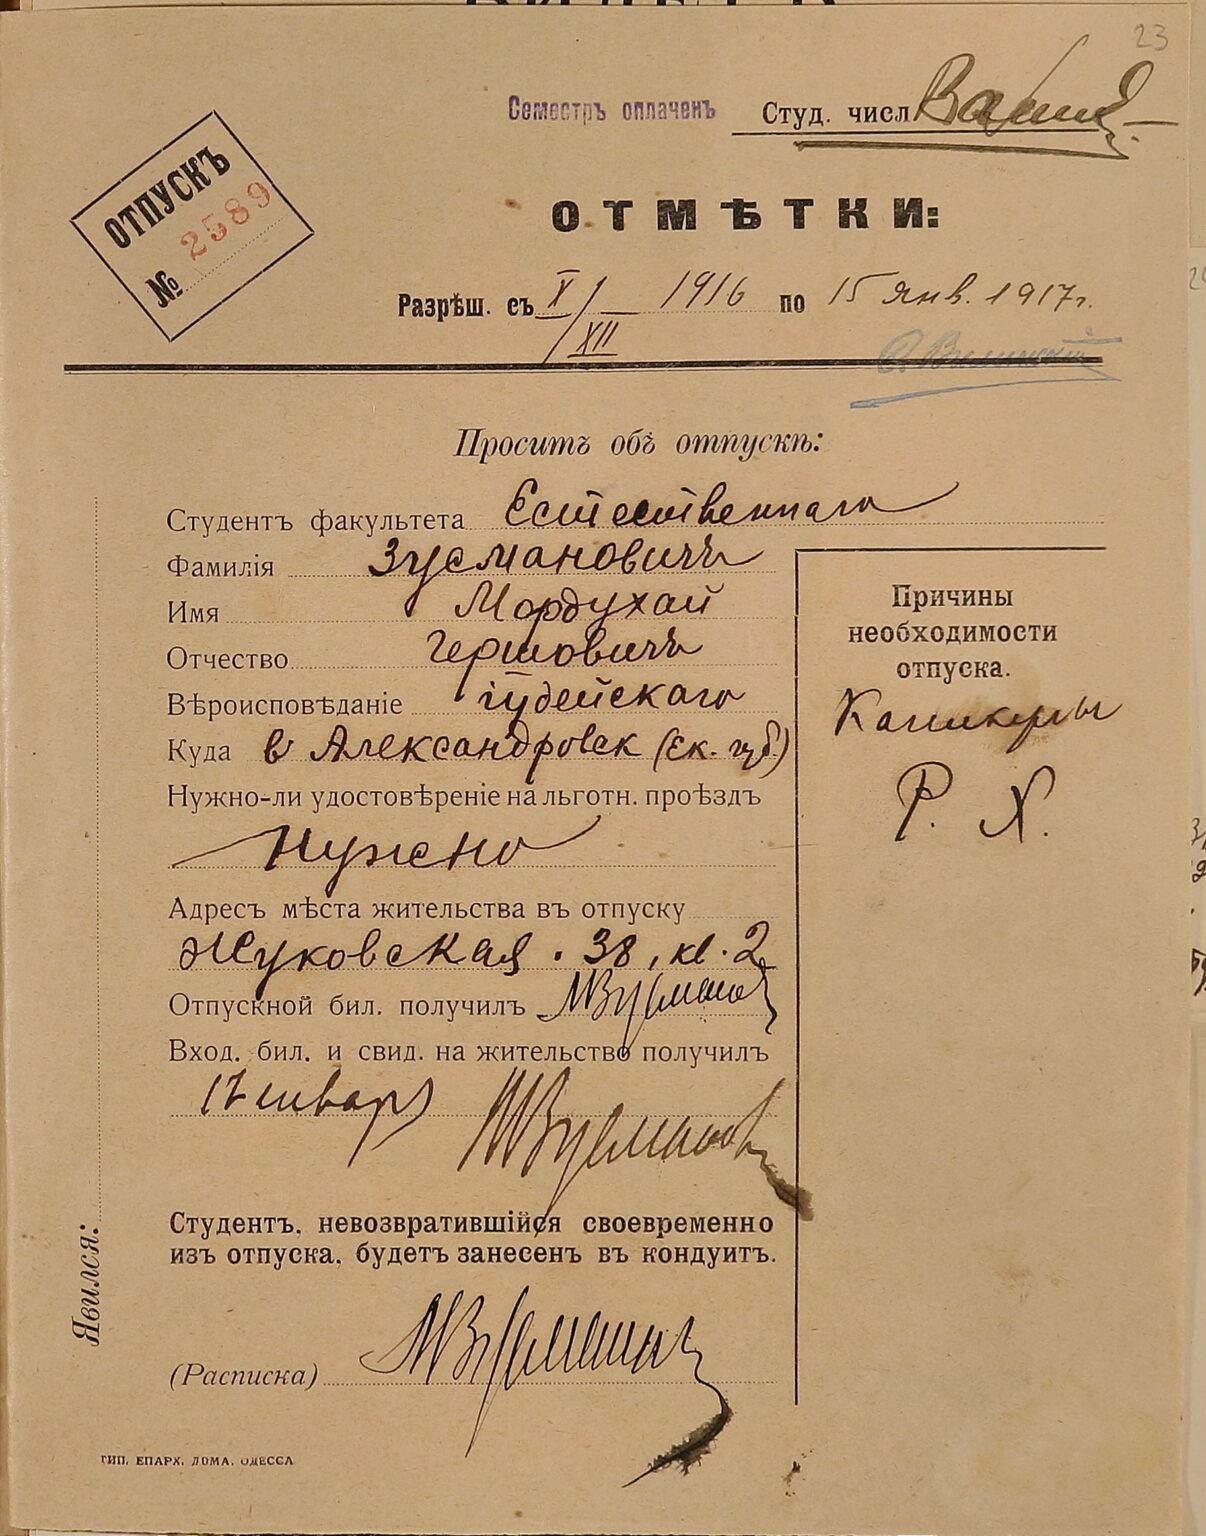 23
Семестръ оплаченъ Студ. числ
ОТПУСКЪ
№ 2589
ОТМѢТКИ:
Разрѣш. съ X/XII 1916 по 15 янв. 1917 г.
Проситъ объ отпускѣ:
Студентъ факультета Естественнаго
Фамилія Зусмановичъ
Имя Мордухай
Отчество Гершовичъ
Вѣроисповѣданіе іудейскаго
Куда в Александровск (Ек. губ.)
Нужно-ли удостовѣреніе на льготн. проѣздъ
Нужно
Адресъ мѣста жительства въ отпуску
Жуковская. 38, кв. 2
Отпускной бил. получилъ МЗусманов
Вход. бил. и свид. на жительство получилъ
января МЗусманов
Студентъ, невозвратившійся своевременно
изъ отпуска, будетъ занесенъ въ кондуитъ.
(Расписка) МЗусманов
Причины
необходимости
отпуска.
Каникулы
Р. Х.
Явился:
ТИП. ЕПАРХ. ДОМА, ОДЕССА